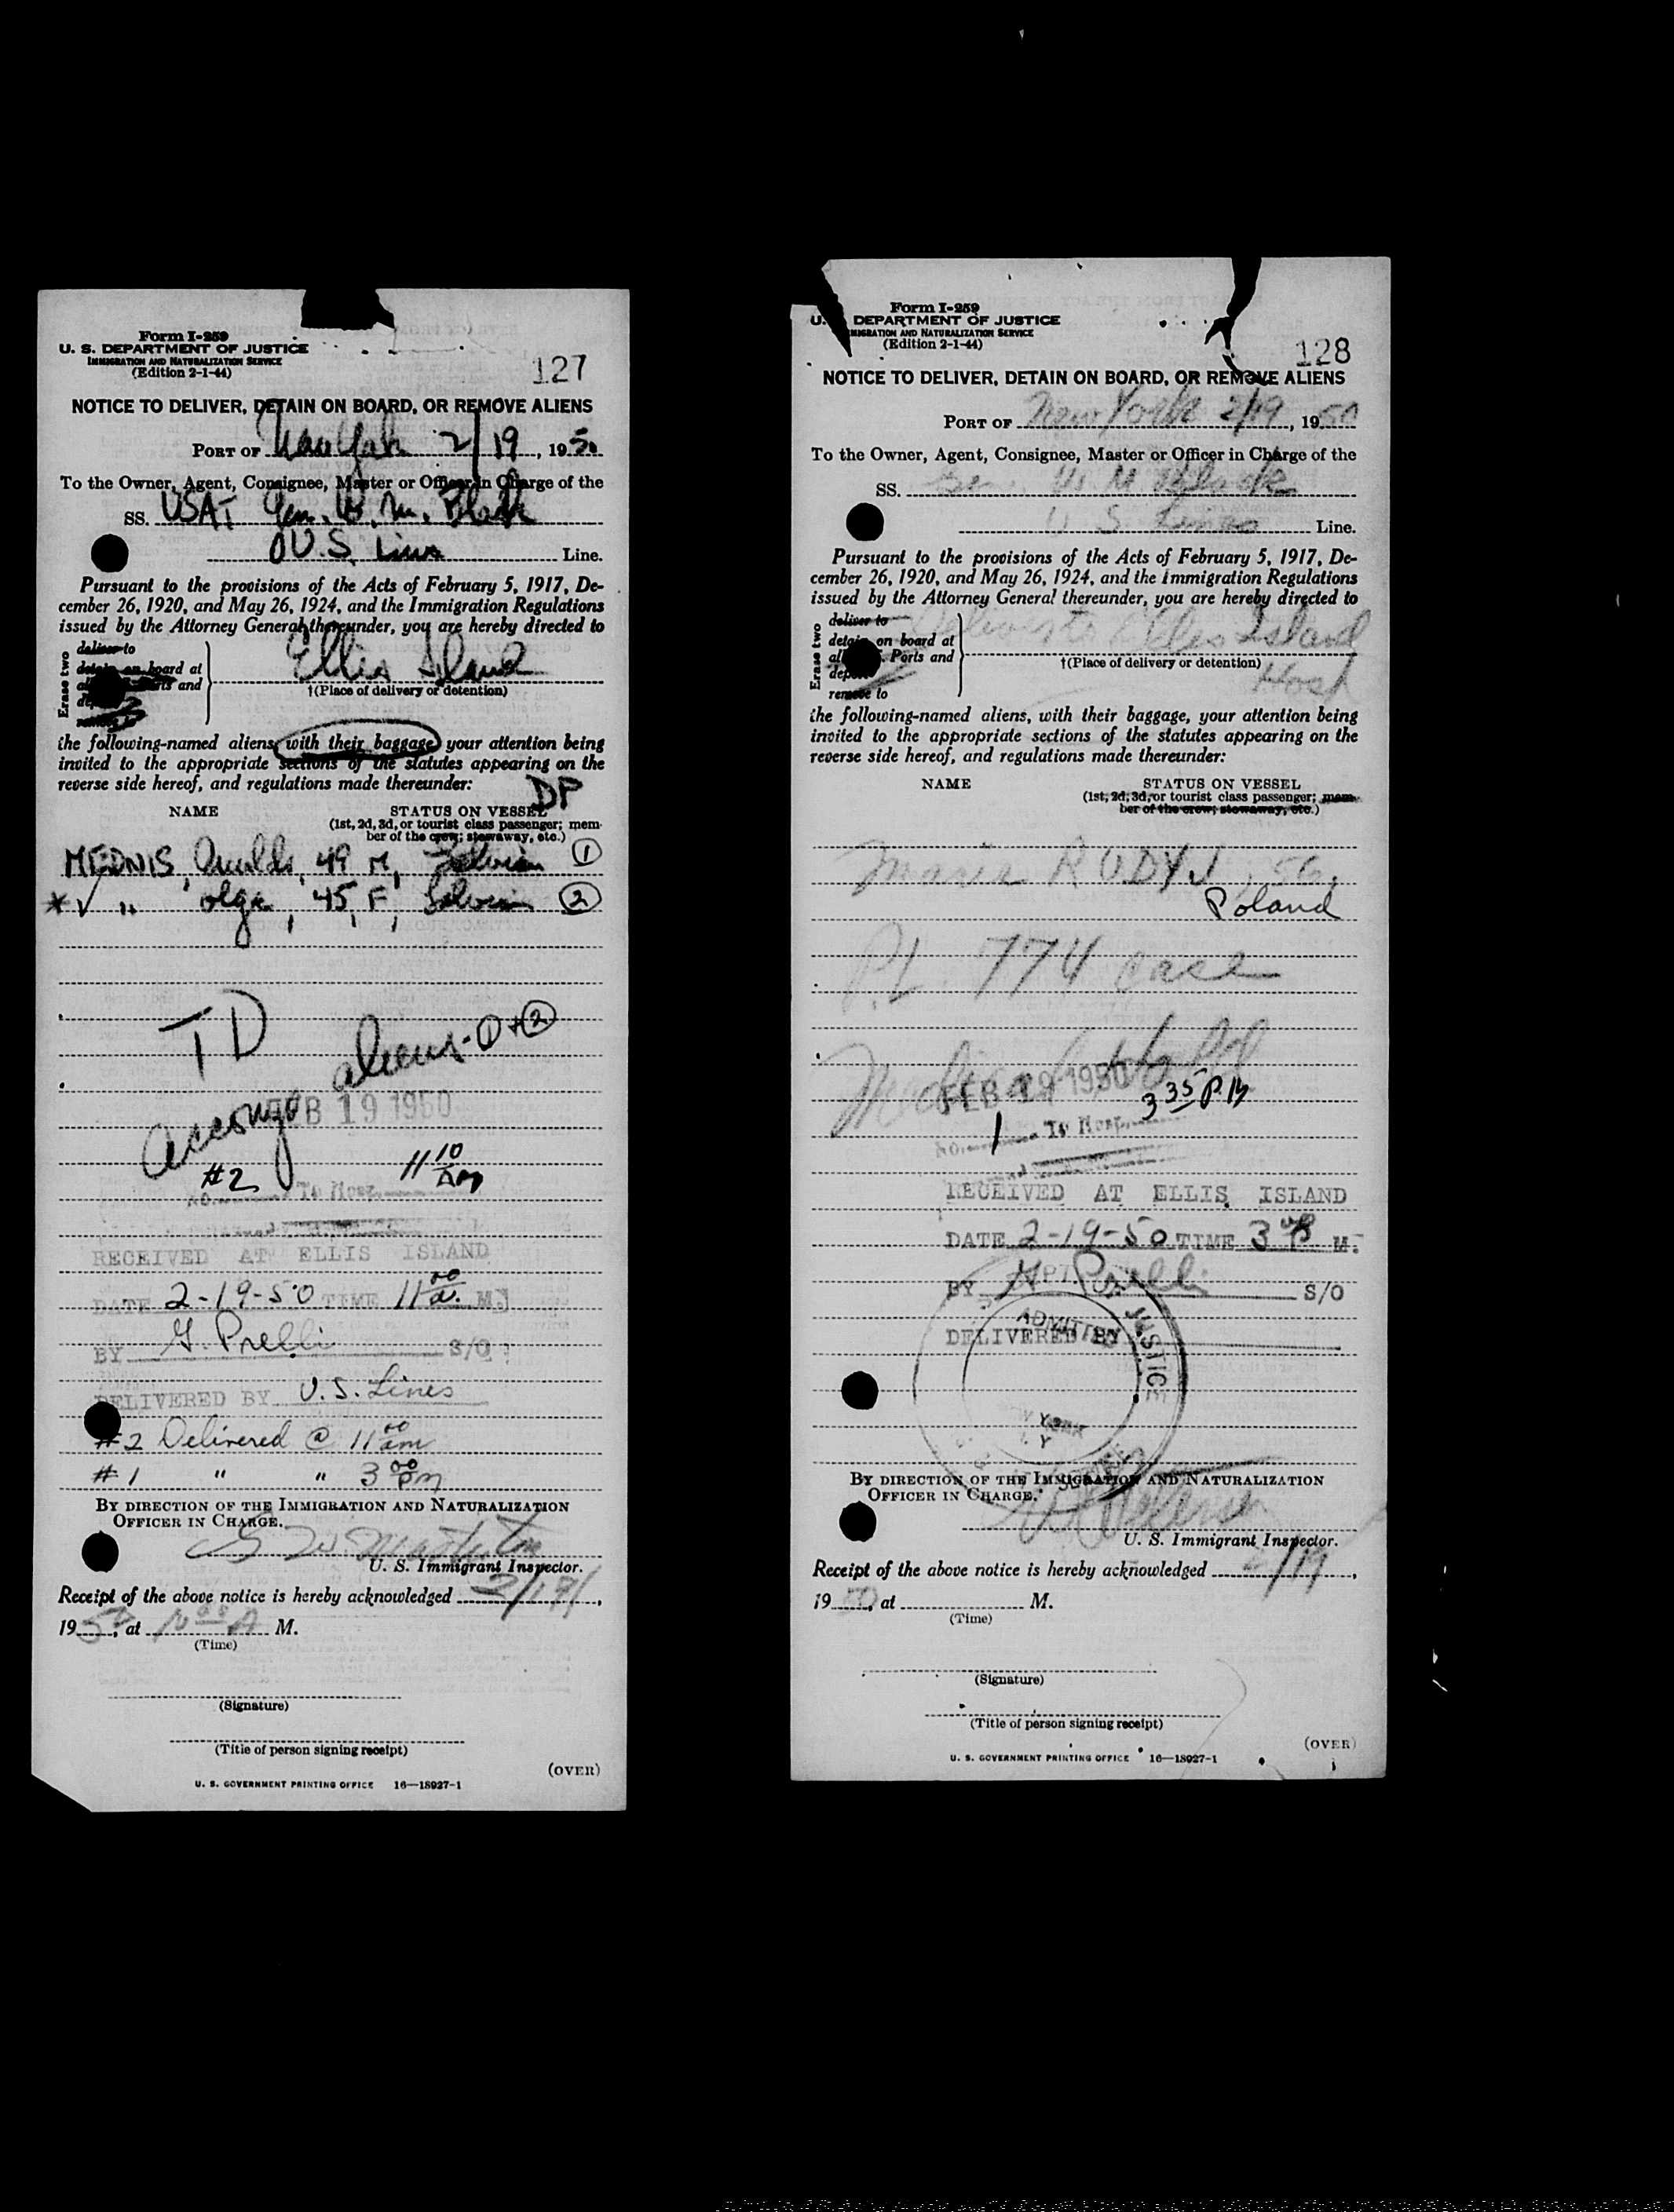 Form I-259
U. S. DEPARTMENT OF JUSTICE
IMMIGRATION AND NATURALIZATION SERVICE
(Edition 2-1-44)
127
NOTICE TO DELIVER, DETAIN ON BOARD, OR REMOVE ALIENS
PORT OF New York 2/19, 1950
To the Owner, Agent, Consignee, Master or Officer in Charge of the
SS. USAT Gen. W. M. Black
U.S. Lines Line.
Pursuant to the provisions of the Acts of February 5, 1917, De-
cember 26, 1920, and May 26, 1924, and the Immigration Regulations
issued by the Attorney General thereunder, you are hereby directed to
Erase two
deliver to
detain on board at
and
Ellis Island
†(Place of delivery or detention)
the following-named aliens, with their baggage, your attention being
invited to the appropriate sections of the statutes appearing on the
reverse side hereof, and regulations made thereunder:
DP
NAME STATUS ON VESSEL
(1st, 2d, 3d, or tourist class passenger; mem-
ber of the crew; stowaway, etc.)
MEDNIS, 49 M, 1
* ✓ " Olga, 45, F, 2
TD
aliens - 1 + 2
FEB 19 1950
#2
11 10 Am
No. To Hosp.
RECEIVED AT ELLIS ISLAND
DATE 2-19-50 TIME 11 00 a. M.
BY G. Prelli S/O
DELIVERED BY U.S. Lines
#2 Delivered @ 11 00 am
#1 " " 3 00 pm
BY DIRECTION OF THE IMMIGRATION AND NATURALIZATION
OFFICER IN CHARGE.
U. S. Immigrant Inspector.
Receipt of the above notice is hereby acknowledged 2/19,
1950, at 10 00 A M.
(Time)
(Signature)
(Title of person signing receipt)
(OVER)
U. S. GOVERNMENT PRINTING OFFICE 16—18927-1
Form I-259
U. DEPARTMENT OF JUSTICE
IMMIGRATION AND NATURALIZATION SERVICE
(Edition 2-1-44)
128
NOTICE TO DELIVER, DETAIN ON BOARD, OR REMOVE ALIENS
PORT OF New York 2/19, 1950
To the Owner, Agent, Consignee, Master or Officer in Charge of the
SS. Gen. W M Black
U S Lines Line.
Pursuant to the provisions of the Acts of February 5, 1917, De-
cember 26, 1920, and May 26, 1924, and the Immigration Regulations
issued by the Attorney General thereunder, you are hereby directed to
Erase two
deliver to
detain on board at
Ports and
remove to
Deliver to Ellis Island
†(Place of delivery or detention)
Hosp
the following-named aliens, with their baggage, your attention being
invited to the appropriate sections of the statutes appearing on the
reverse side hereof, and regulations made thereunder:
NAME STATUS ON VESSEL
(1st, 2d, 3d, or tourist class passenger; mem-
ber of the crew; stowaway, etc.)
Maria RUDYJ, 56,
Poland
P.L. 774 case
FEB 19 1950
3 35 P.M
No. 1 To Hosp.
RECEIVED AT ELLIS ISLAND
DATE 2-19-50 TIME 3 M.
BY G. Prelli S/O
DELIVERED BY
ADMITTED
JUSTICE
BY DIRECTION OF THE IMMIGRATION AND NATURALIZATION
OFFICER IN CHARGE.
U. S. Immigrant Inspector.
Receipt of the above notice is hereby acknowledged 2/19,
1950, at M.
(Time)
(Signature)
(Title of person signing receipt)
(OVER)
U. S. GOVERNMENT PRINTING OFFICE 16—18927-1